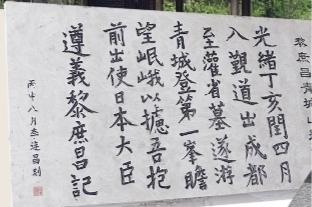 黎庶昌青城山
光緒丁亥閏四月
入覲道出成都
至灌省墓遂游
青城登第一峯瞻
望岷峨以攄吾抱
前出使日本大臣
遵義黎庶昌記